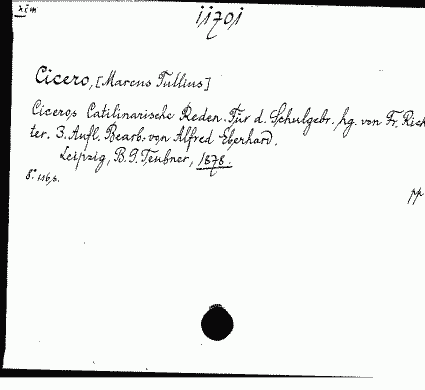 xim
11701
Cicero, [Marcus Tullius]
Ciceros Catilinarische Reden. Für d. Schulgebr. hg. von Fr. Rich
ter. 3. Aufl. Bearb. von Alfred Eberhard.
Leipzig, B. G. Teubner, 1878.
8° 116 p.
pp